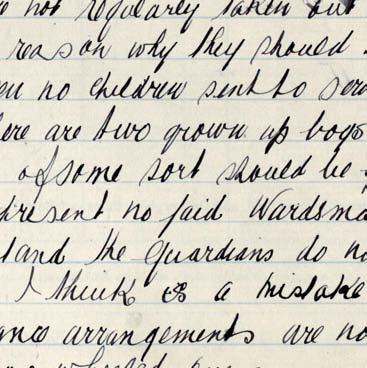 e not regularly taken out
reason why they should
en no children sent to serv
here are two grown up boys
of some sort should be
present no paid Wardsma
stand the guardians do no
I think is a mistake
ance arrangements are no